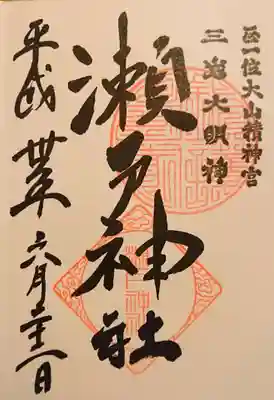 正一位大山積神宮
三島大明神
瀬戸神社
平成丗年六月